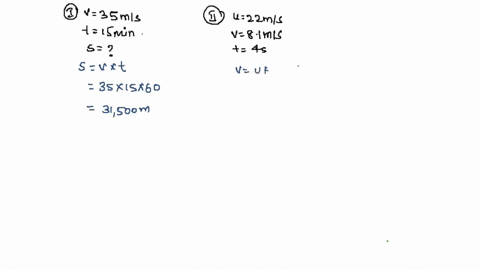 I v=35m/s
t=15min.
s=?
s=v*t
=35*15*60
=31,500m
II u=22m/s
v=8.1m/s
t=4s
v=u+